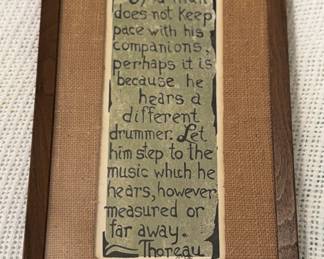 a man
does not keep
pace with his
companions,
perhaps it is
because he
hears a
different
drummer. Let
him step to the
music which he
hears, however
measured or
far away.
Thoreau